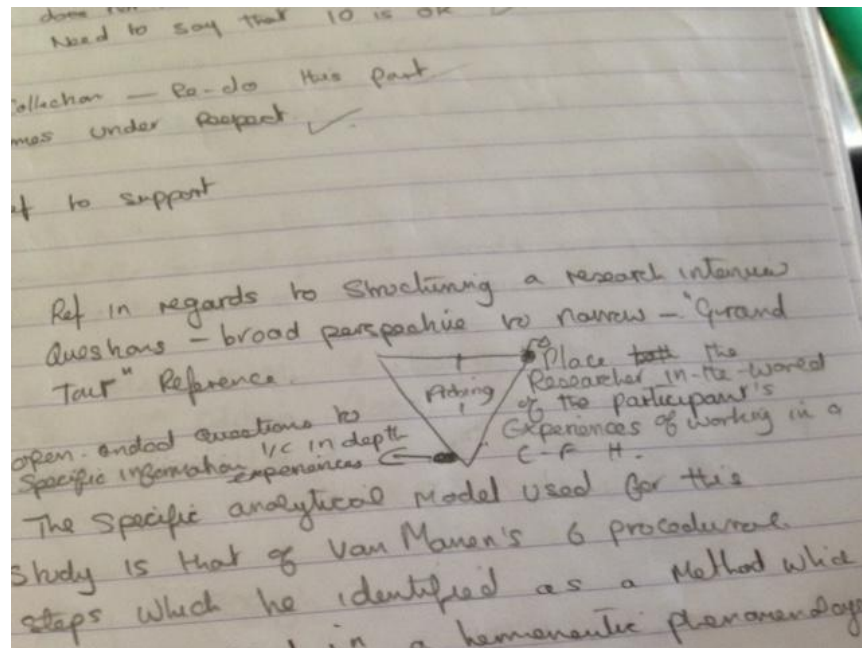 done
Need to say that 10 is OK
ollection — Re-do this part
mes under Respect ✓
ef to support
Ref in regards to Structuring a research interview
Questions - broad perspective to narrow - "Grand
Tour" Reference.
Place the
Researcher in-the-world
of the participant's
Experiences of working in a
C-F H.
Probing
open-ended questions to
Specific information, in depth
experiences
The Specific analytical model used for this
Study is that of Van Manen's 6 procedural
steps which he identified as a Method which
in a hermeneutic phenomenology